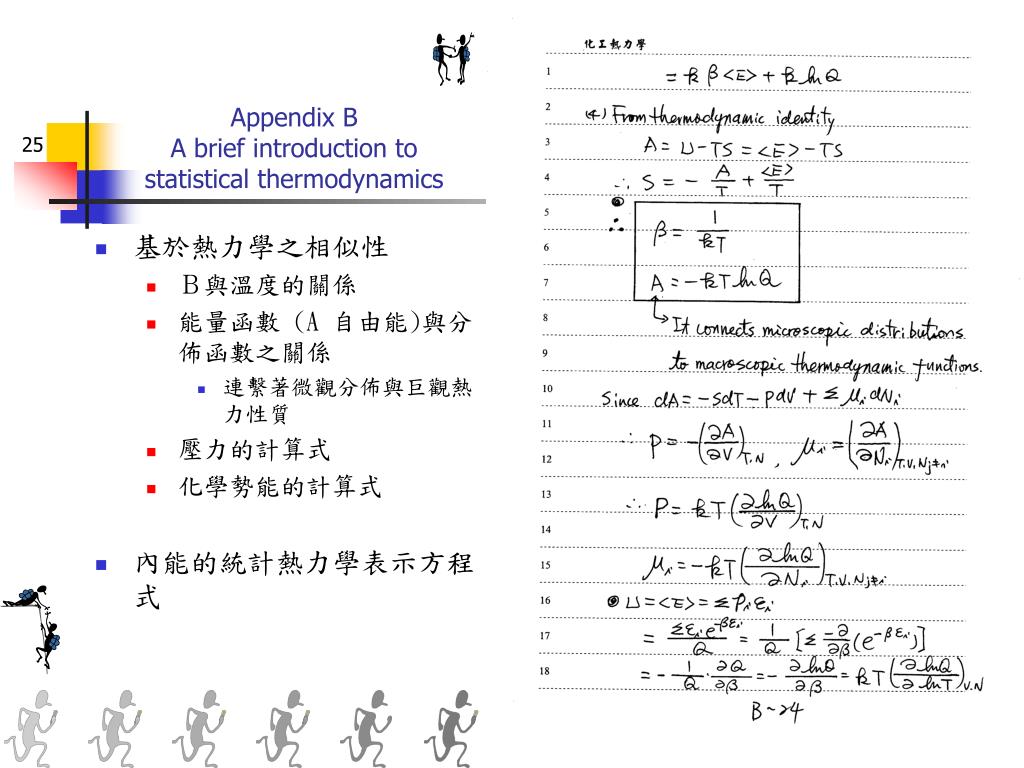 25
Appendix B
A brief introduction to
statistical thermodynamics
基於熱力學之相似性
B與溫度的關係
能量函數 (A 自由能)與分
佈函數之關係
連繫著微觀分佈與巨觀熱
力性質
壓力的計算式
化學勢能的計算式
內能的統計熱力學表示方程
式
化工熱力學
1 = kβ<E> + k ln Q
2 (4) From thermodynamic identity
3 A = U - TS = <E> - TS
4 ∴ S = - A/T + <E>/T
5 ∴ β = 1/kT
6
7 A = -kT ln Q
8 It connects microscopic distributions
9 to macroscopic thermodynamic functions.
10 Since dA = -SdT - PdV + Σ μi dNi
11 ∴ P = -(∂A/∂V)T.N , μi = (∂A/∂Ni)T.V.Nj≠i
12
13 ∴ P = kT(∂lnQ/∂V)T.N
14
15 μi = -kT(∂lnQ/∂Ni)T.V.Nj≠i
16 ◉ U = <E> = Σ Pi εi
17 = Σεi e^-βεi / Q = 1/Q [Σ -∂/∂β (e^-βεi)]
18 = - 1/Q · ∂Q/∂β = - ∂lnQ/∂β = kT(∂lnQ/∂lnT)V.N
B~24